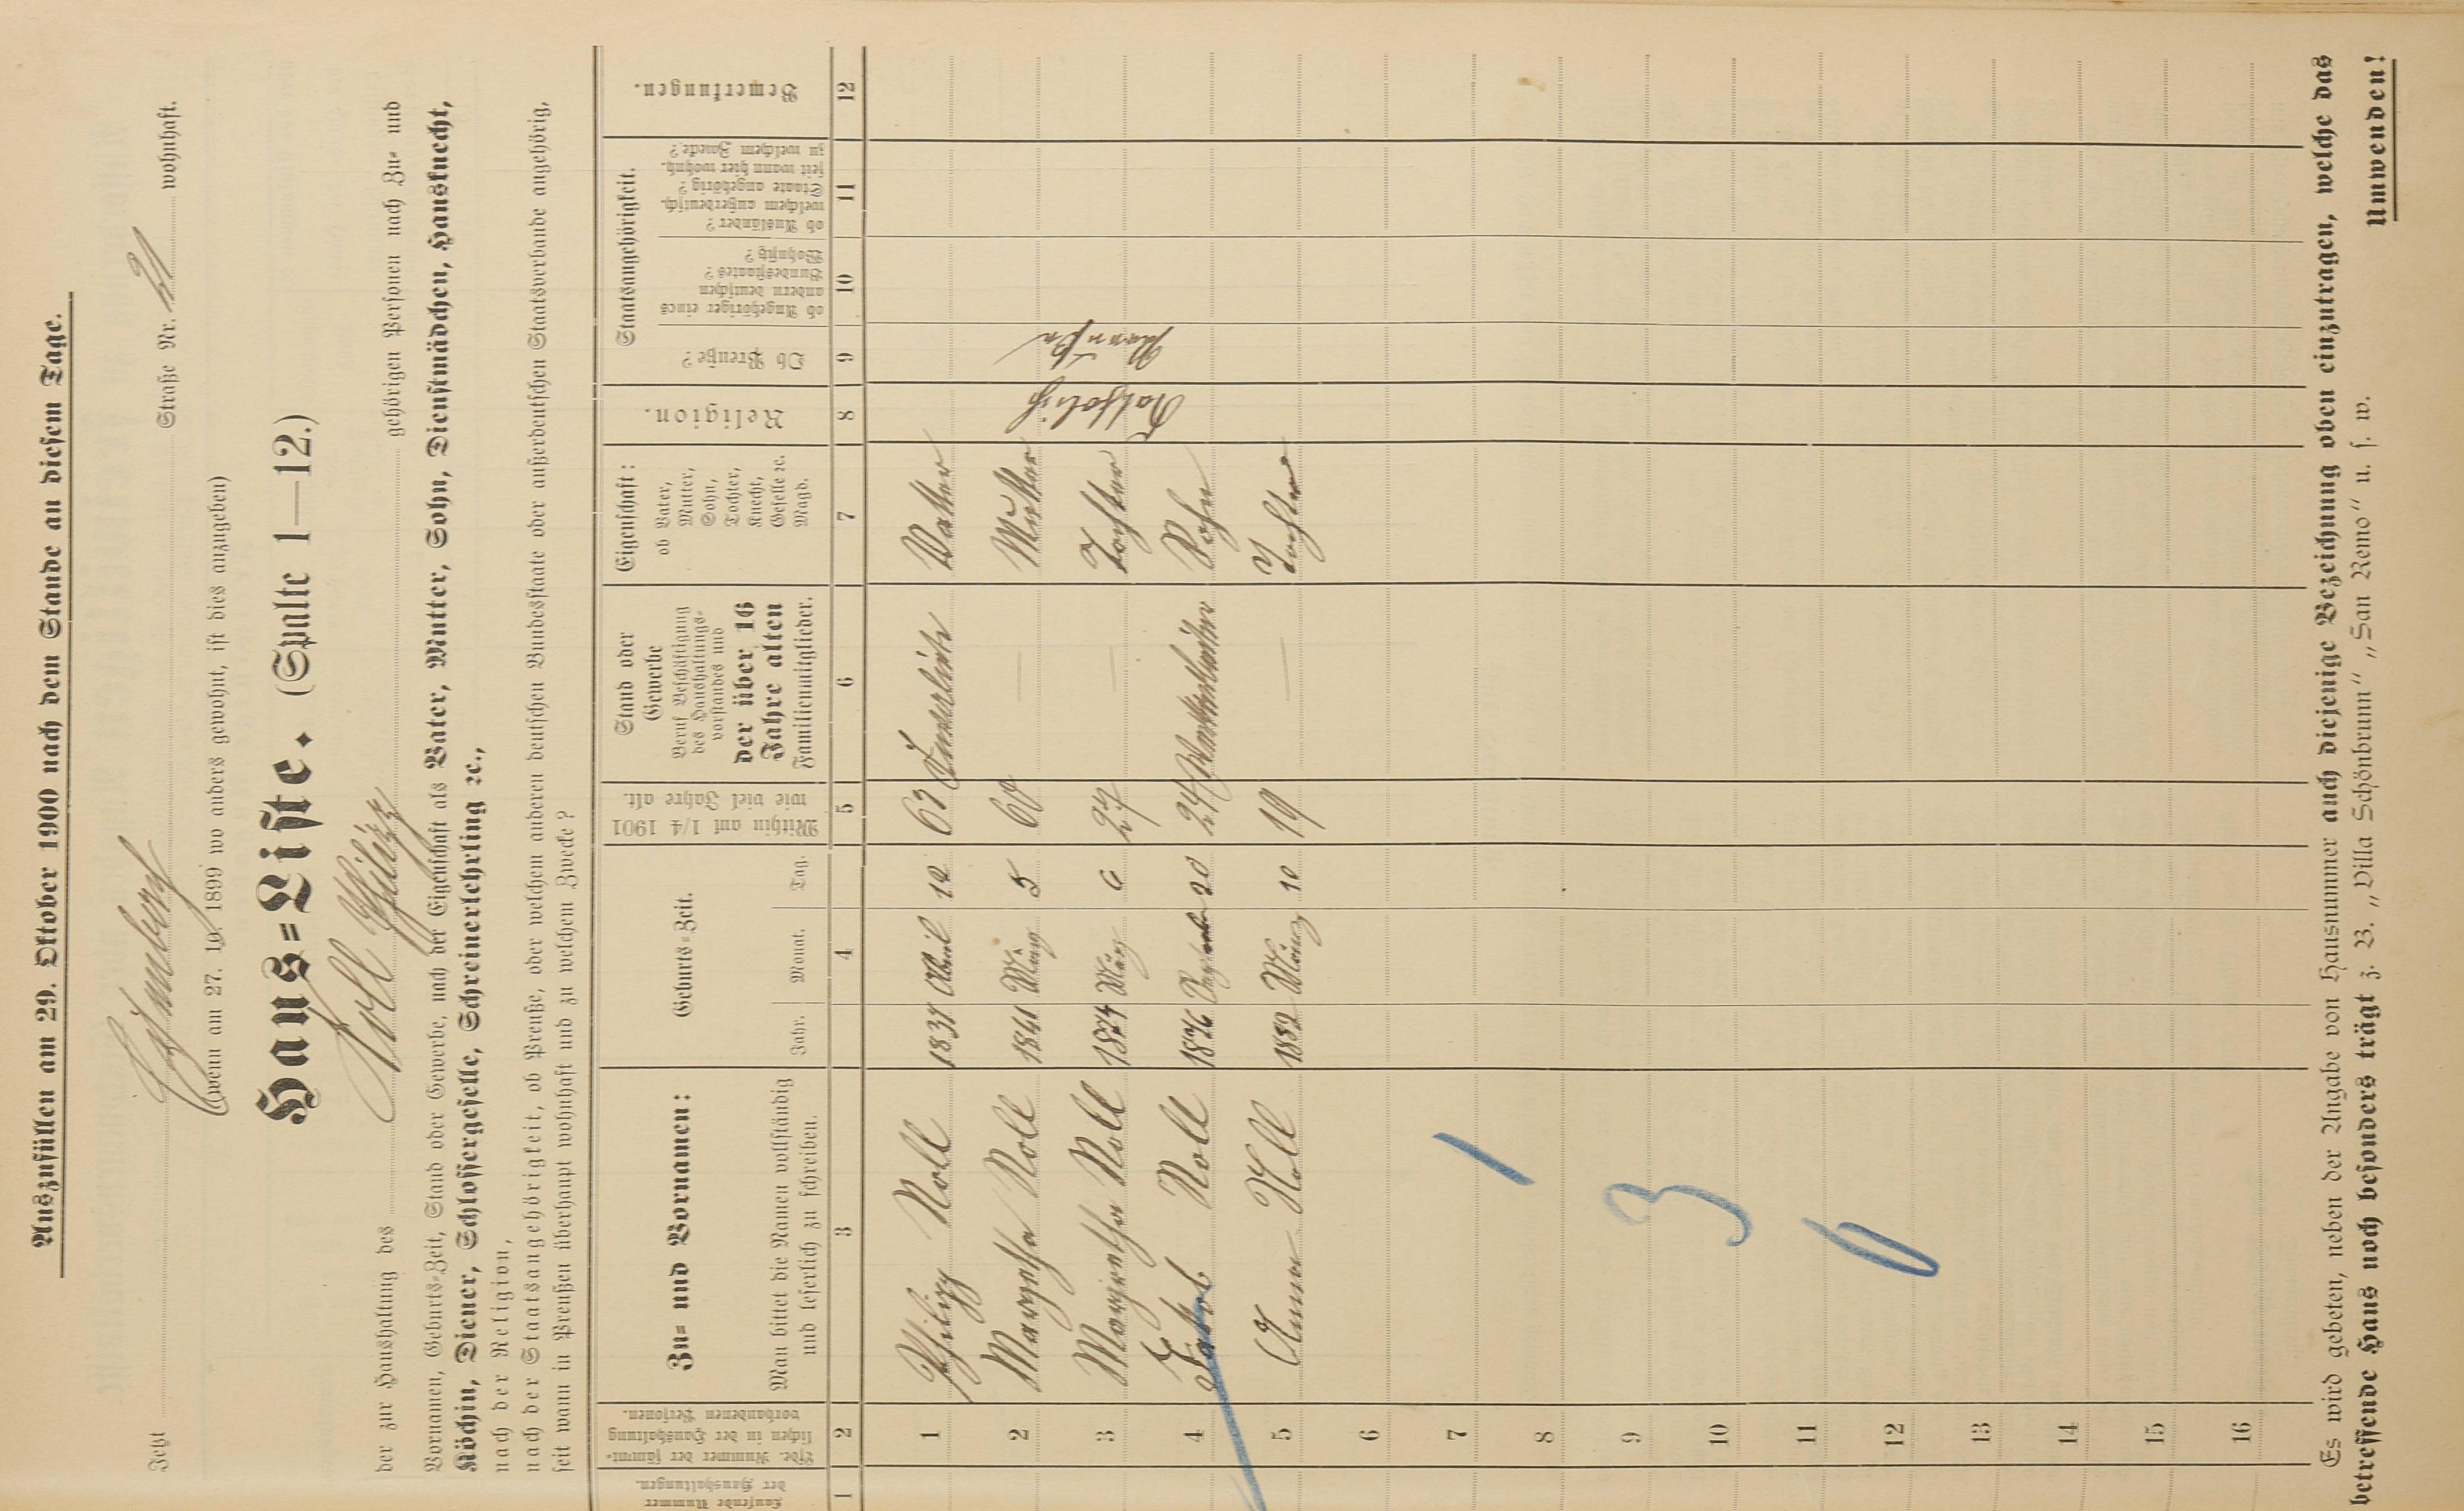 Auszufüllen am 29. Oktober 1900 nach dem Stande an diesem Tage.
Jetzt Straße Nr. 21 wohnhaft.
(wenn am 27. 10. 1899 wo anders gewohnt, ist dies anzugeben)
Haus=Liste. (Spalte 1—12.)
der zur Haushaltung des Noll Philipp gehörigen Personen nach Zu= und
Vornamen, Geburts=Zeit, Stand oder Gewerbe, nach der Eigenschaft als Vater, Mutter, Sohn, Dienstmädchen, Hausknecht,
Köchin, Diener, Schlossergeselle, Schreinerlehrling ꝛc.,
nach der Religion,
nach der Staatsangehörigkeit, ob Preuße, oder welchem anderen deutschen Bundesstaate oder außerdeutschen Staatsverbande angehörig,
seit wann in Preußen überhaupt wohnhaft und zu welchem Zwecke?
Laufende Nummer der Haushaltungen.
Lfde. Nummer der sämmtlichen in der Haushaltung vorhandenen Personen.
Zu= und Vornamen:
Man bittet die Namen vollständig und leserlich zu schreiben.
Geburts=Zeit.
Jahr. Monat. Tag.
Mithin auf 1/4 1901 wie viel Jahre alt.
Stand oder Gewerbe
Beruf Beschäftigung des Haushaltungs-vorstandes und der über 16 Jahre alten Familienmitglieder.
Eigenschaft:
ob Vater, Mutter, Sohn, Tochter, Knecht, Geselle ꝛc. Magd.
Religion.
Staatsangehörigkeit.
Ob Preuße?
ob Angehöriger eines andern deutschen Bundesstaates? Wohnsitz?
ob Ausländer? welchem außerdeutsch. Staate angehörig? seit wann hier wohnh. zu welchem Zwecke?
Bemerkungen.
1 2 3 4 5 6 7 8 9 10 11 12
1 Philipp Noll 1837 April 12 63 Vatter
2 Margretha Noll 1841 März 5 60 — Mutter Katholisch
3 Margretha Noll 1874 März 6 27 — Tochter
4 Jakob Noll 1876 20 24 Sohn
5 Anna Noll 1882 März 10 19 — Tochter
6
7
8
9
10
11
12
13
14
15
16
1
3
6
Es wird gebeten, neben der Angabe von Hausnummer auch diejenige Bezeichnung oben einzutragen, welche das
betreffende Haus noch besonders trägt z. B. „Villa Schönbrunn" „San Remo" u. s. w.
Umwenden!